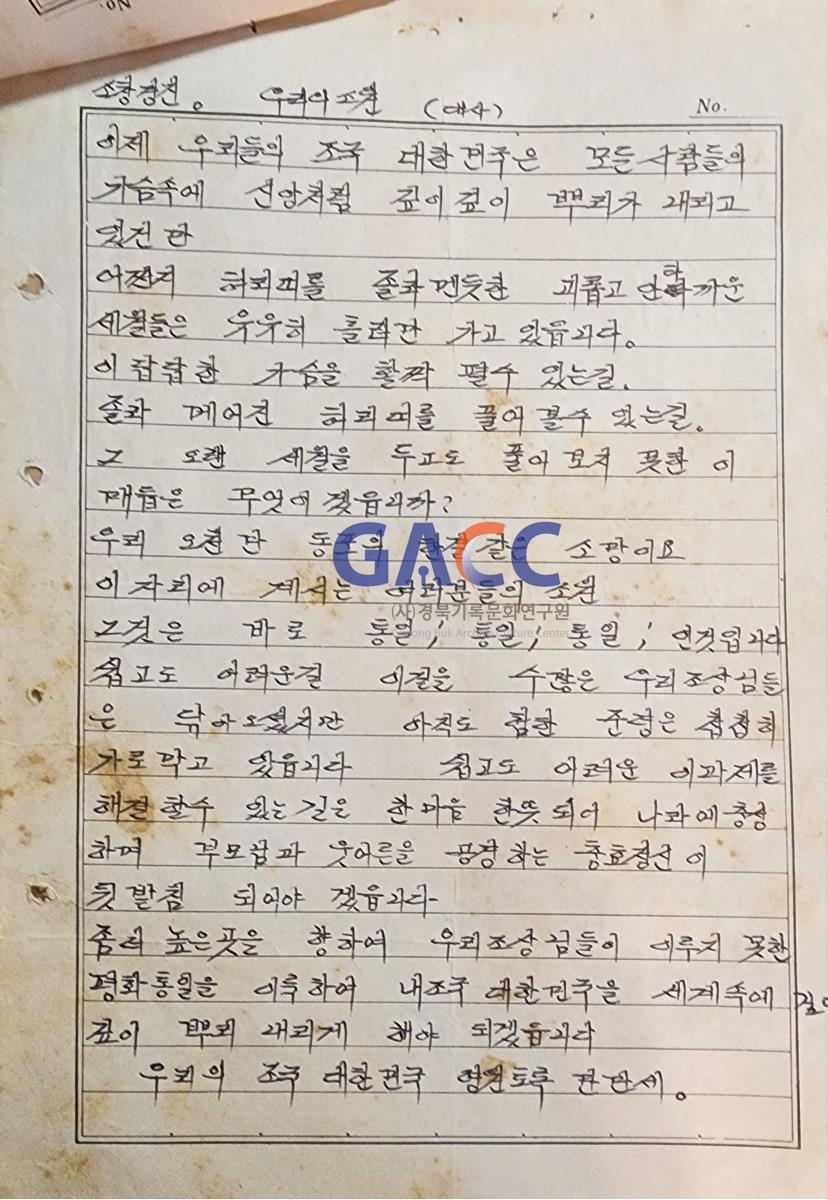 No.
소창경진。 우리의 소원 (대사) No.
이제 우리들의 조국 대한민주은 모든 사람들의
가슴속에 신앙처럼 깊이깊이 뿌리가 내리고
있건만
어쩐지 허리띠를 졸라맨듯한 괴롭고 안타까운
세월들은 유유히 흘러만 가고 있읍니다.
이 답답한 가슴을 활짝 펼수 있는길.
졸라 메어진 허리띠를 풀어 볼수 있는길.
그 오랜 세월을 두고도 풀어 보지 못한 이
매듭은 무엇이 겠읍니까?
우리 오천만 동포의 한결 같은 소망이요
이 자리에 계시는 여러분들의 소원
그것은 바로 통일! 통일! 통일! 인것입니다
쉽고도 어려운길 이길을 수많은 우리조상님들
은 닦아오셨지만 아직도 험한 준령은 첩첩히
가로막고 있읍니다 쉽고도 어려운 이과제를
해결할수 있는길은 한마음 한뜻되어 나라에충성
하며 부모님과 웃어른을 공경하는 충효정신이
뒷받침 되어야 겠읍니다-
좀더 높은곳을 향하여 우리조상님들이 이루지 못한
평화통일을 이룩하여 내조국 대한민주을 세계속에 깊이
깊이 뿌리 내리게 해야 되겠읍니다
우리의 조국 대한민국 영원토록 만만세。
GACC
(사)경북기록문화연구원